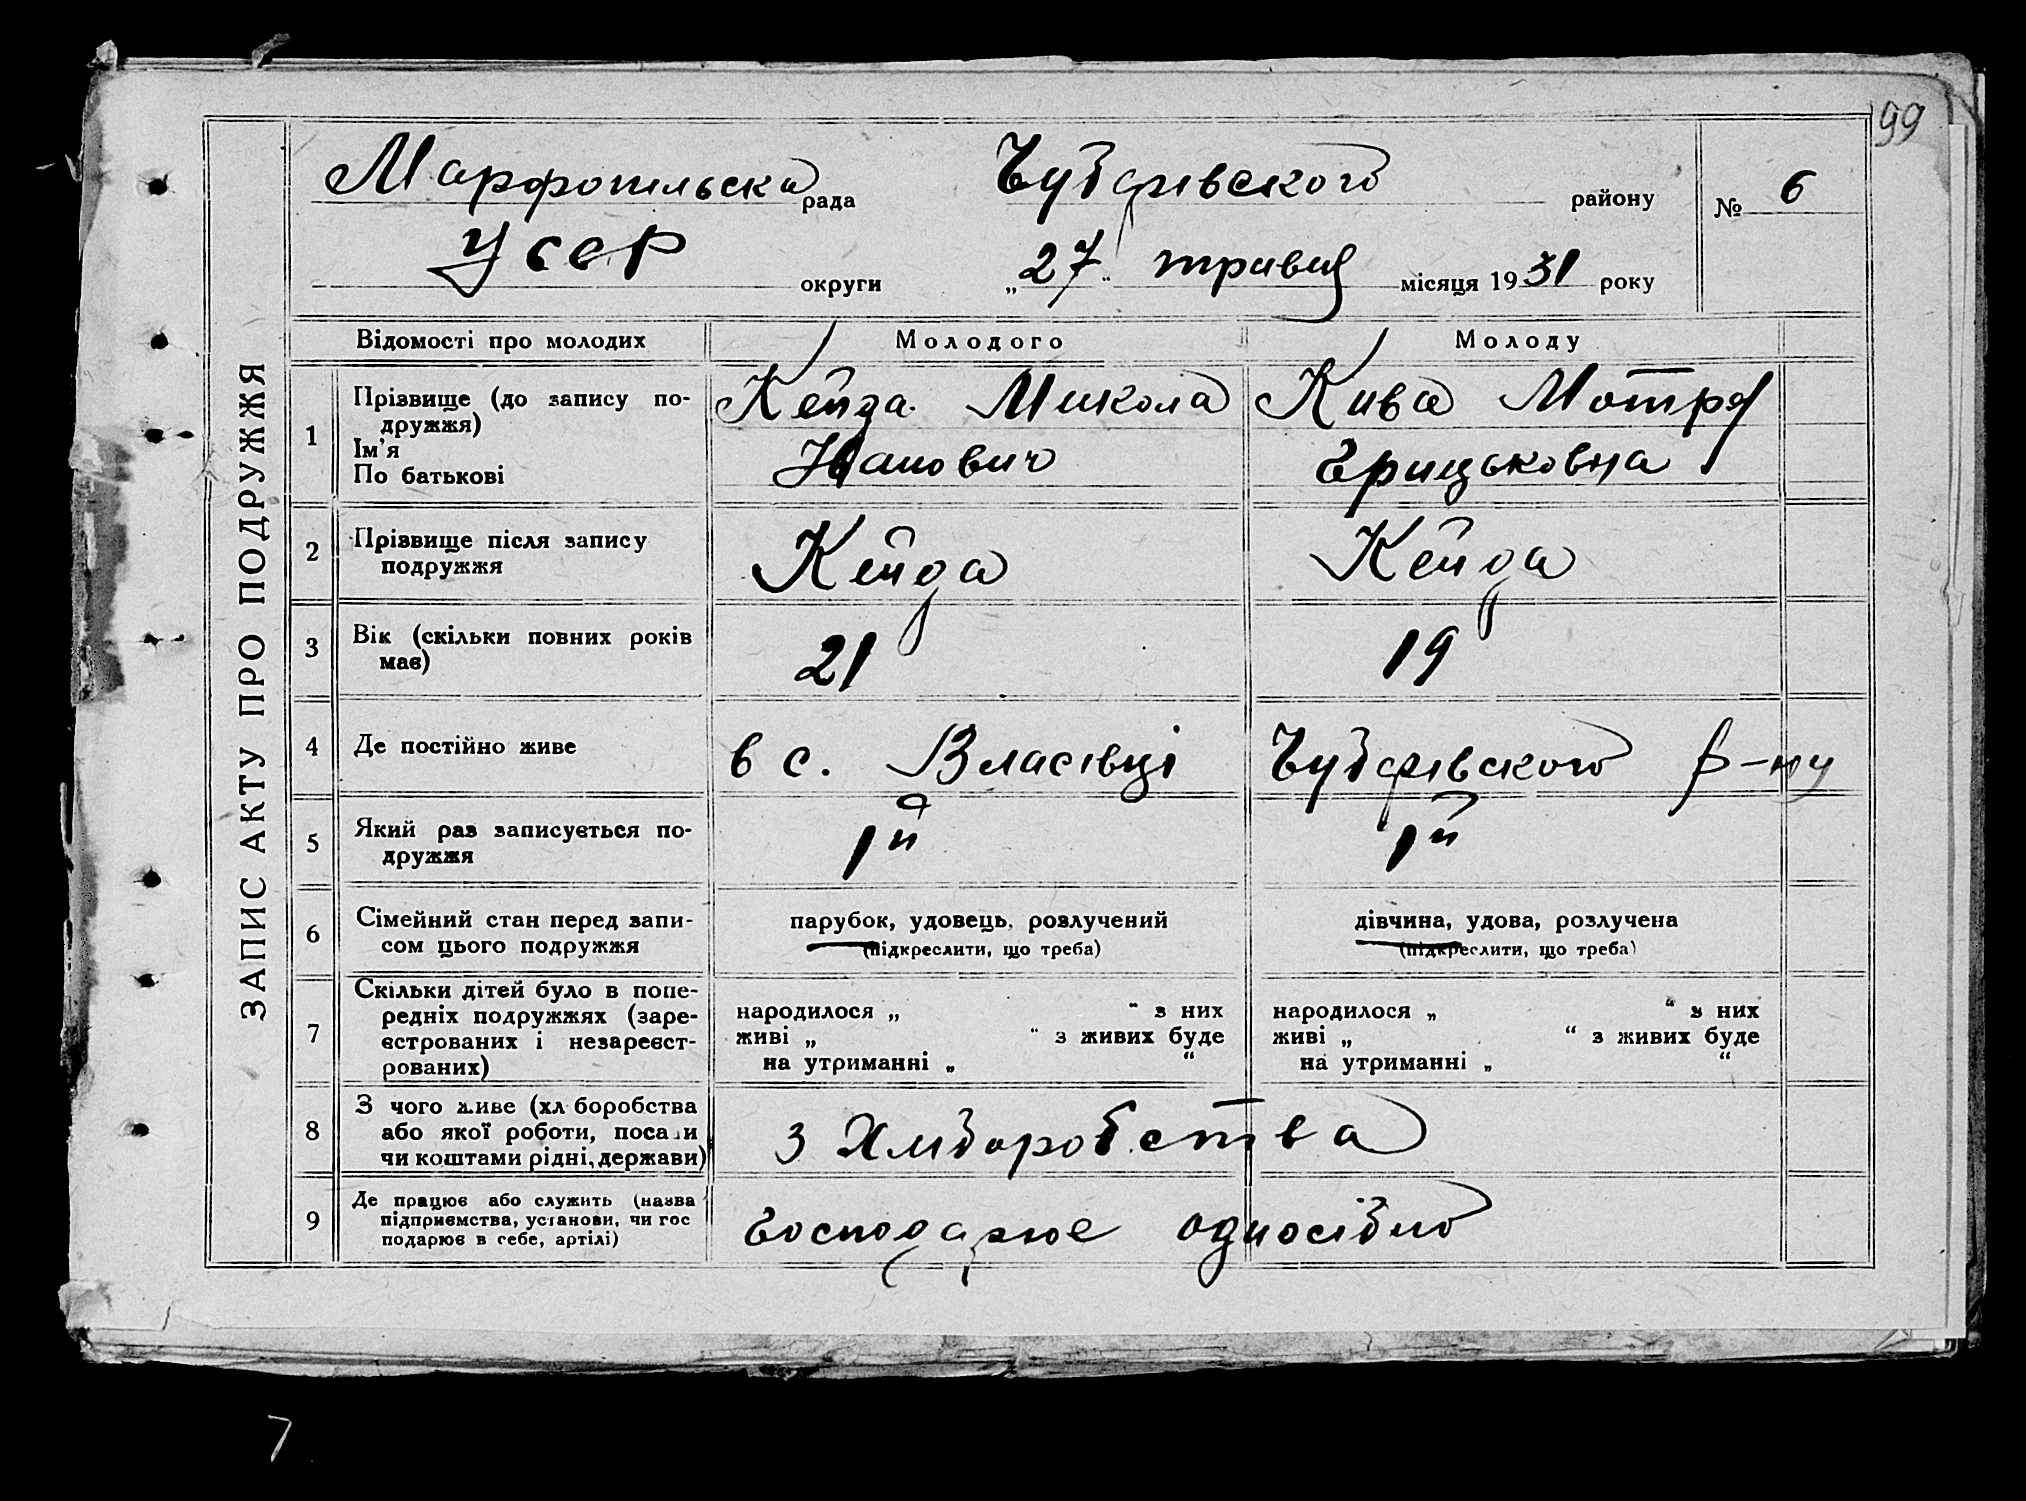 99
Марфопільська рада Чубарівського району № 6
УСРР округи „27" травня місяця 1931 року
ЗАПИС АКТУ ПРО ПОДРУЖЖЯ
Відомості про молодих Молодого Молоду
1 Прізвище (до запису по-
дружжя)
Ім'я
По батькові
Кейда Микола
Іванович
Кива Мотря
Грицьковна
2 Прізвище після запису
подружжя
Кейда Кейда
3 Вік (скільки повних років
має)
21 19
4 Де постійно живе в с. Власівці Чубарівського р-ну
5 Який раз записується по-
дружжя
1й 1й
6 Сімейний стан перед запи-
сом цього подружжя
парубок, удовець, розлучений
(підкреслити, що треба)
дівчина, удова, розлучена
(підкреслити, що треба)
7 Скільки дітей було в попе-
редніх подружжях (заре-
єстрованих і незареєст-
рованих)
народилося „ " з них
живі „ " з живих буде
на утриманні „ "
народилося „ " з них
живі „ " з живих буде
на утриманні „ "
8 З чого живе (хл боробства
або якої роботи, посади
чи коштами рідні, держави)
з Хліборобства
9 Де працює або служить (назва
підприємства, установи, чи гос
подарює в себе, артілі)
Господарює одноосібно
7